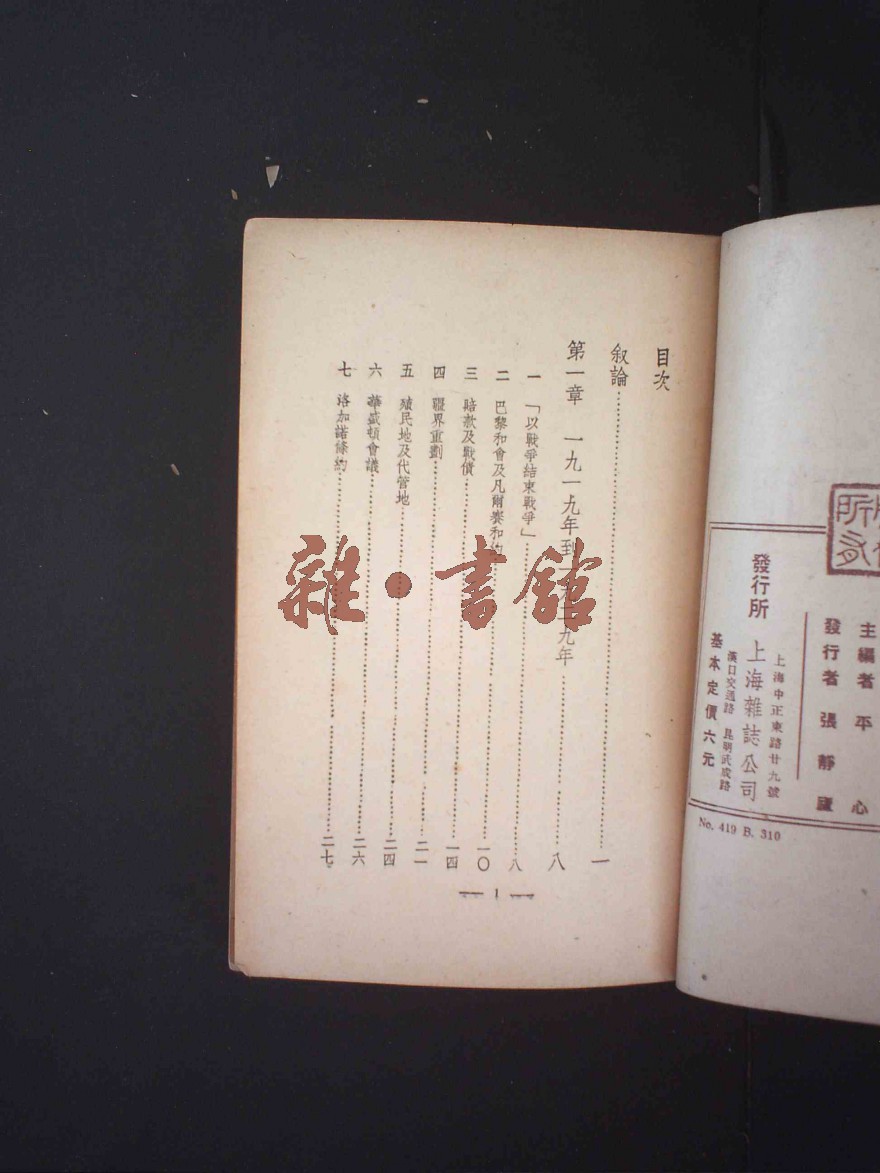 目次
叙論 一
第一章 一九一九年到一九二九年 八
一 「以戰爭結束戰爭」 八
二 巴黎和會及凡爾賽和約 一〇
三 賠款及戰債 一四
四 疆界重劃 二一
五 殖民地及代管地 二四
六 華盛頓會議 二六
七 洛加諾條約 二七
— 1 —
雜·書館
所有
主編者 平心
發行者 張靜廬
發行所 上海雜誌公司
上海中正東路廿九號
漢口交通路 昆明武成路
基本定價六元
No. 419 B. 310